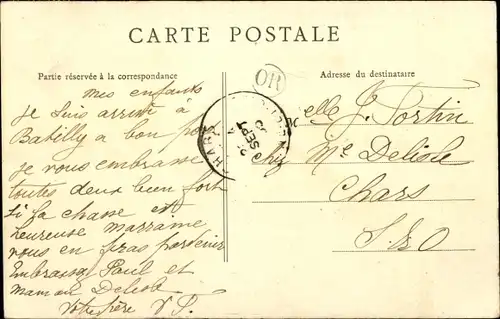 CARTE POSTALE
Partie réservée à la correspondance
Adresse du destinataire
mes enfants
je suis arrivé à
Batilly a bon port
je vous embrasse
toutes deux bien fort
si la chasse est
heureuse marraine
vous en fera parvenir
Embrassez Paul et
maman Delisle
Votre frère V F.
OR
SEPT
Melle J. Fortin
chez Me Delisle
Chars
S & O